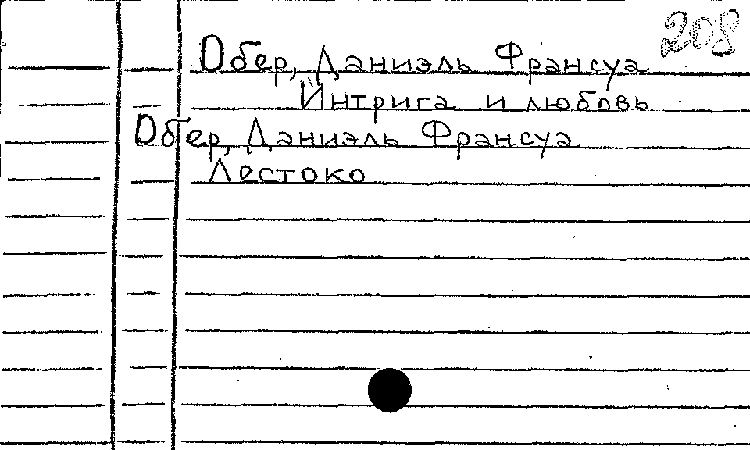 208
Обер, Даниэль Франсуа
Интрига и любовь
Обер, Даниэль Франсуа
Лестоко